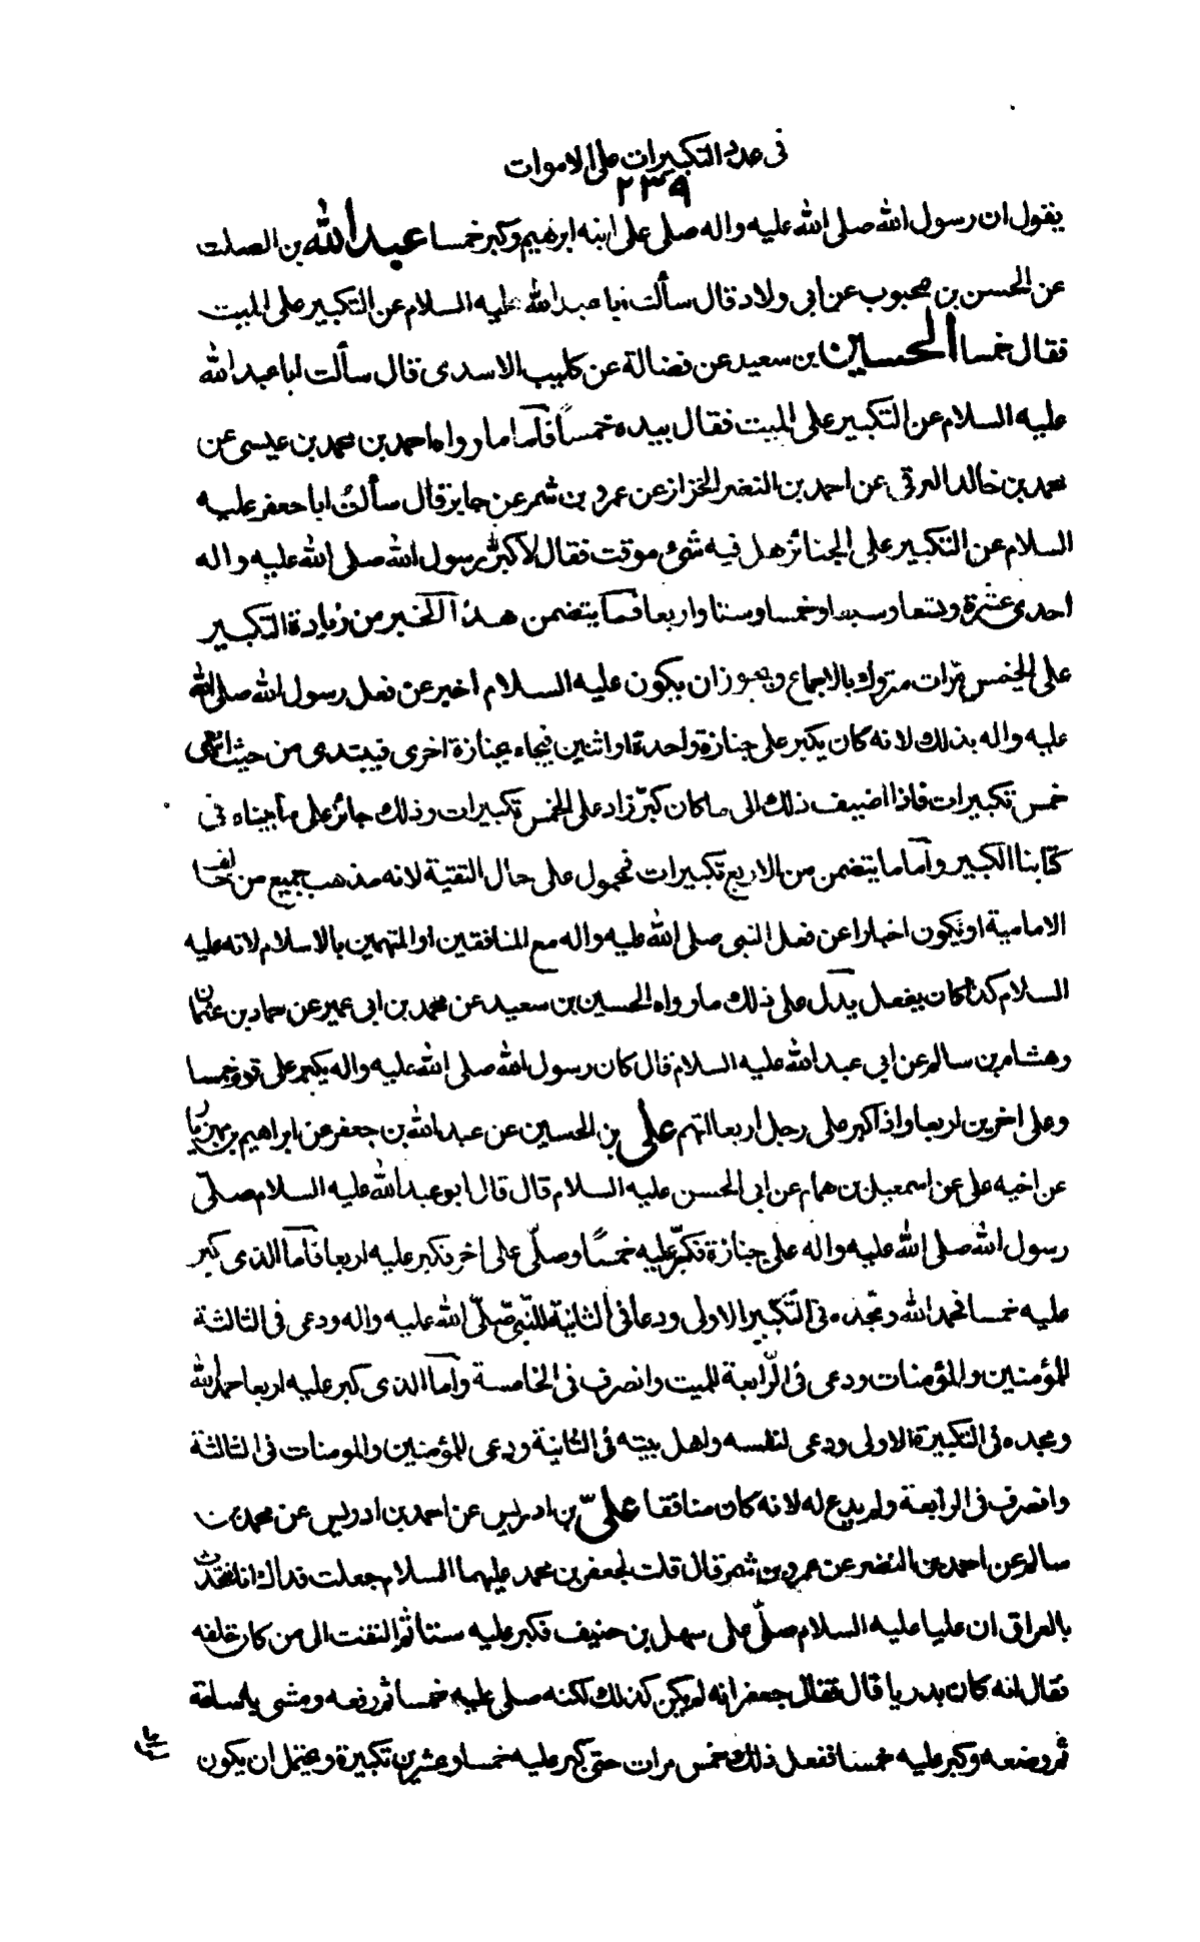 فى عدد التكبيرات على الاموات
٢٣٩
يقول ان رسول الله صلى الله عليه واله صلى على ابنه ابرهيم وكبر خمسا عبد الله بن الصلت
عن الحسن بن محبوب عن ابى ولاد قال سألت ابا عبد الله عليه السلام عن التكبير على الميت
فقال خمسا الحسين بن سعيد عن فضالة عن كليب الاسدى قال سألت ابا عبد الله
عليه السلام عن التكبير على الميت فقال بيده خمساً فأما ما رواه احمد بن محمد بن عيسى عن
محمد بن خالد البرقى عن احمد بن النضر الخزاز عن عمرو بن شمر عن جابر قال سألت ابا جعفر عليه
السلام عن التكبير على الجنائز هل فيه شئ موقت فقال لا كبر رسول الله صلى الله عليه واله
احدى عشرة وتسعا وسبعا وخمسا وستا واربعا فما يتضمن هذا الخبر من زيادة التكبير
على الخمس مرات متروك بالاجماع ويجوز ان يكون عليه السلام اخبر عن فعل رسول الله صلى الله
عليه واله بذلك لانه كان يكبر على جنازة واحدة او اثنين فيجاء بجنازة اخرى فيبتدى من حيث انتهى
خمس تكبيرات فاذا اضيف ذلك الى ما كان كبّر زاد على الخمس تكبيرات وذلك جائز على ما بيناه فى
كتابنا الكبير وأما ما يتضمن من الاربع تكبيرات فمحمول على حال التقية لانه مذهب جميع من خالف
الامامية او يكون اخبارا عن فعل النبى صلى الله عليه واله مع المنافقين او المتهمين بالاسلام لانه عليه
السلام كذا كان يفعل يدل على ذلك ما رواه الحسين بن سعيد عن محمد بن ابى عمير عن حماد بن عثمان
وهشام بن سالم عن ابى عبد الله عليه السلام قال كان رسول الله صلى الله عليه واله يكبر على قوم خمسا
وعلى اخرين اربعا واذا كبر على رجل اربعا اتهم على بن الحسين عن عبد الله بن جعفر عن ابراهيم بن مهزيار
عن اخيه على عن اسمعيل بن همام عن ابى الحسن عليه السلام قال قال ابو عبد الله عليه السلام صلّى
رسول الله صلى الله عليه واله على جنازة فكبّر عليه خمسًا وصلّى على اخر فكبر عليه اربعا فأما الذى كبر
عليه خمسا فحمد الله ومجّده فى التّكبير الاولى ودعا فى الثانية للنّبى صلّى الله عليه واله ودعى فى الثالثة
للمؤمنين والمؤمنات ودعى فى الرّابعة للميت وانصرف فى الخامسة وأما الذى كبر عليه اربعا حمد الله
ومجده فى التكبيرة الاولى ودعى لنفسه واهل بيته فى الثانية ودعى للمؤمنين والمومنات فى الثالثة
وانصرف فى الرابعة ولم يدع له لانه كان منافقا علىّ بن ادريس عن احمد بن ادريس عن محمد بن
سالم عن احمد بن النضر عن عمرو بن شمر قال قلت لجعفر بن محمد عليهما السلام جعلت فداك انا نتحدث
بالعراق ان عليا عليه السلام صلّى على سهل بن حنيف فكبر عليه ستا ثم التفت الى من كان خلفه
فقال انه كان بدريا قال فقال جعفر انه لم يكن كذلك لكنه صلى عليه خمسا ثم رفعه ومشى به ساعة
ثم وضعه وكبر عليه خمسا ففعل ذلك خمس مرات حتى كبر عليه خمسا وعشرين تكبيرة ويحتمل ان يكون